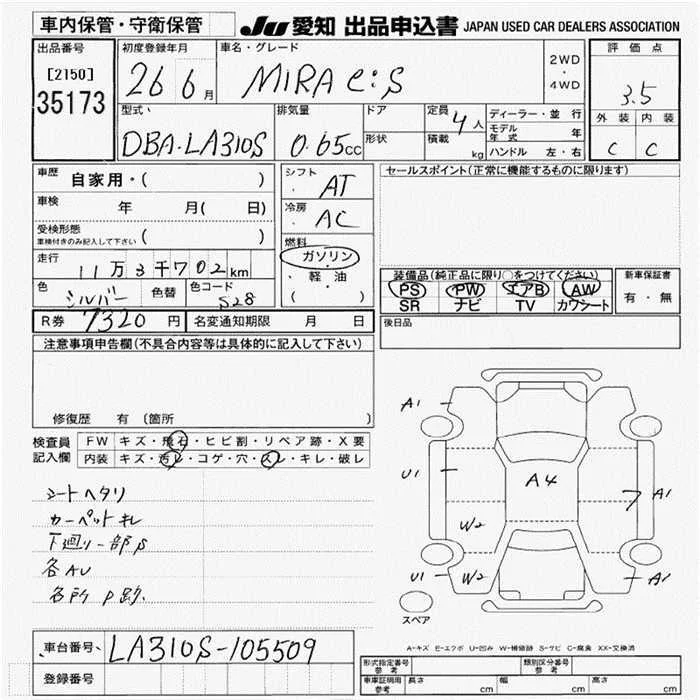 車内保管・守衛保管 JU 愛知 出品申込書 JAPAN USED CAR DEALERS ASSOCIATION
出品番号 初度登録年月 車名・グレード 2WD・4WD 評価点
[2150] 26 6月 MIRA e:S 3.5
35173
型式 排気量 ドア 定員 4人 ディーラー・並行 外装 内装
DBA・LA310S 0.65cc 形状 積載 kg モデル年式 年 C C
ハンドル 左・右
車歴 自家用・( ) シフト AT セールスポイント(正常に機能するものに限ります)
車検 年 月( 日) 冷房 AC
受検形態
車検付きのみ記入して下さい ( ) 燃料
走行 11万3千702km ガソリン・軽油
( )
色 シルバー 色替 色コード S28
装備品(純正品に限り○をつけてください) 新車保証書
PS PW エアB AW 有・無
SR ナビ TV カワシート
R券 7320円 名変通知期限 月 日 後日品
注意事項申告欄(不具合内容等は具体的に記入して下さい)
修復歴 有(箇所 )
検査員記入欄 FW キズ・飛石・ヒビ割・リペア跡・X要
内装 キズ・汚レ・コゲ・穴・スレ・キレ・破レ
シートヘタリ
カーペットキレ
下廻り一部S
各AU
各所P跡.
A1
U1 A4 A1
W2
U1 W2 A1
スペア
A-キズ E-エクボ U-凹み W-補修跡 S-サビ C-腐食 XX-交換済
車台番号 LA310S-105509
登録番号
形式指定番号 参考 類別区分番号 参考
車庫証明用 参考 長さ cm 幅 cm 高さ cm